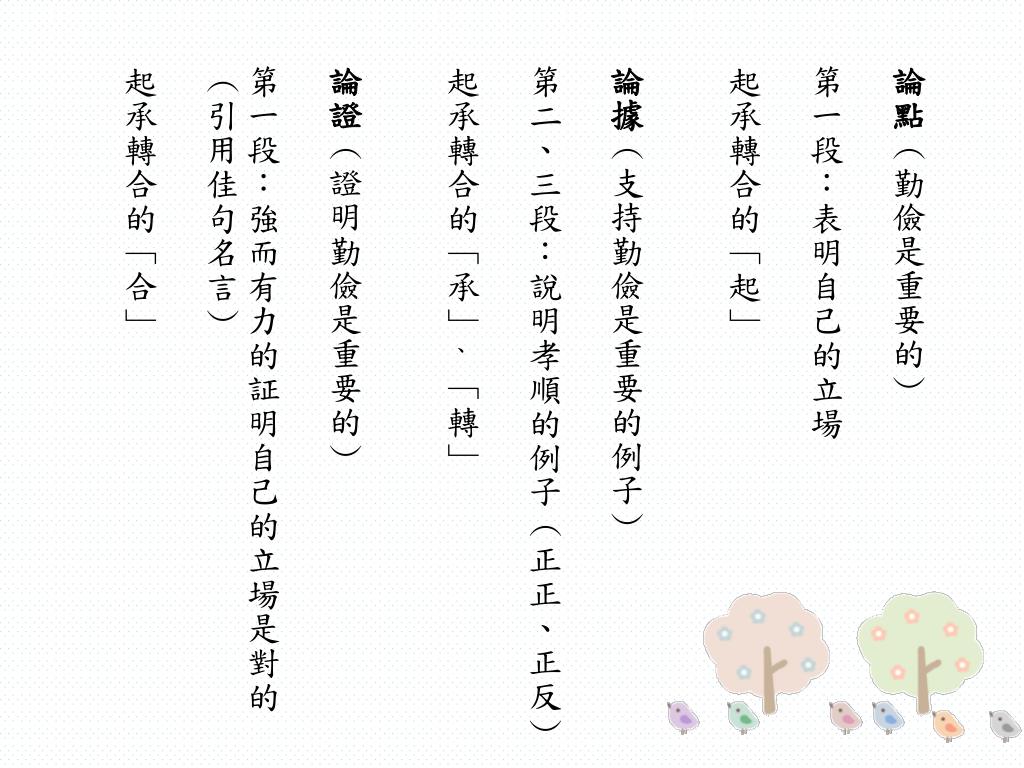 論點（勤儉是重要的）
第一段：表明自己的立場
起承轉合的「起」
論據（支持勤儉是重要的例子）
第二、三段：說明孝順的例子（正正、正反）
起承轉合的「承」、「轉」
論證（證明勤儉是重要的）
第一段：強而有力的証明自己的立場是對的
（引用佳句名言）
起承轉合的「合」